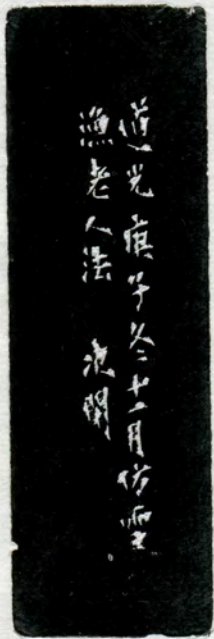 道光庚子冬十一月仿雪
漁老人法　次閑